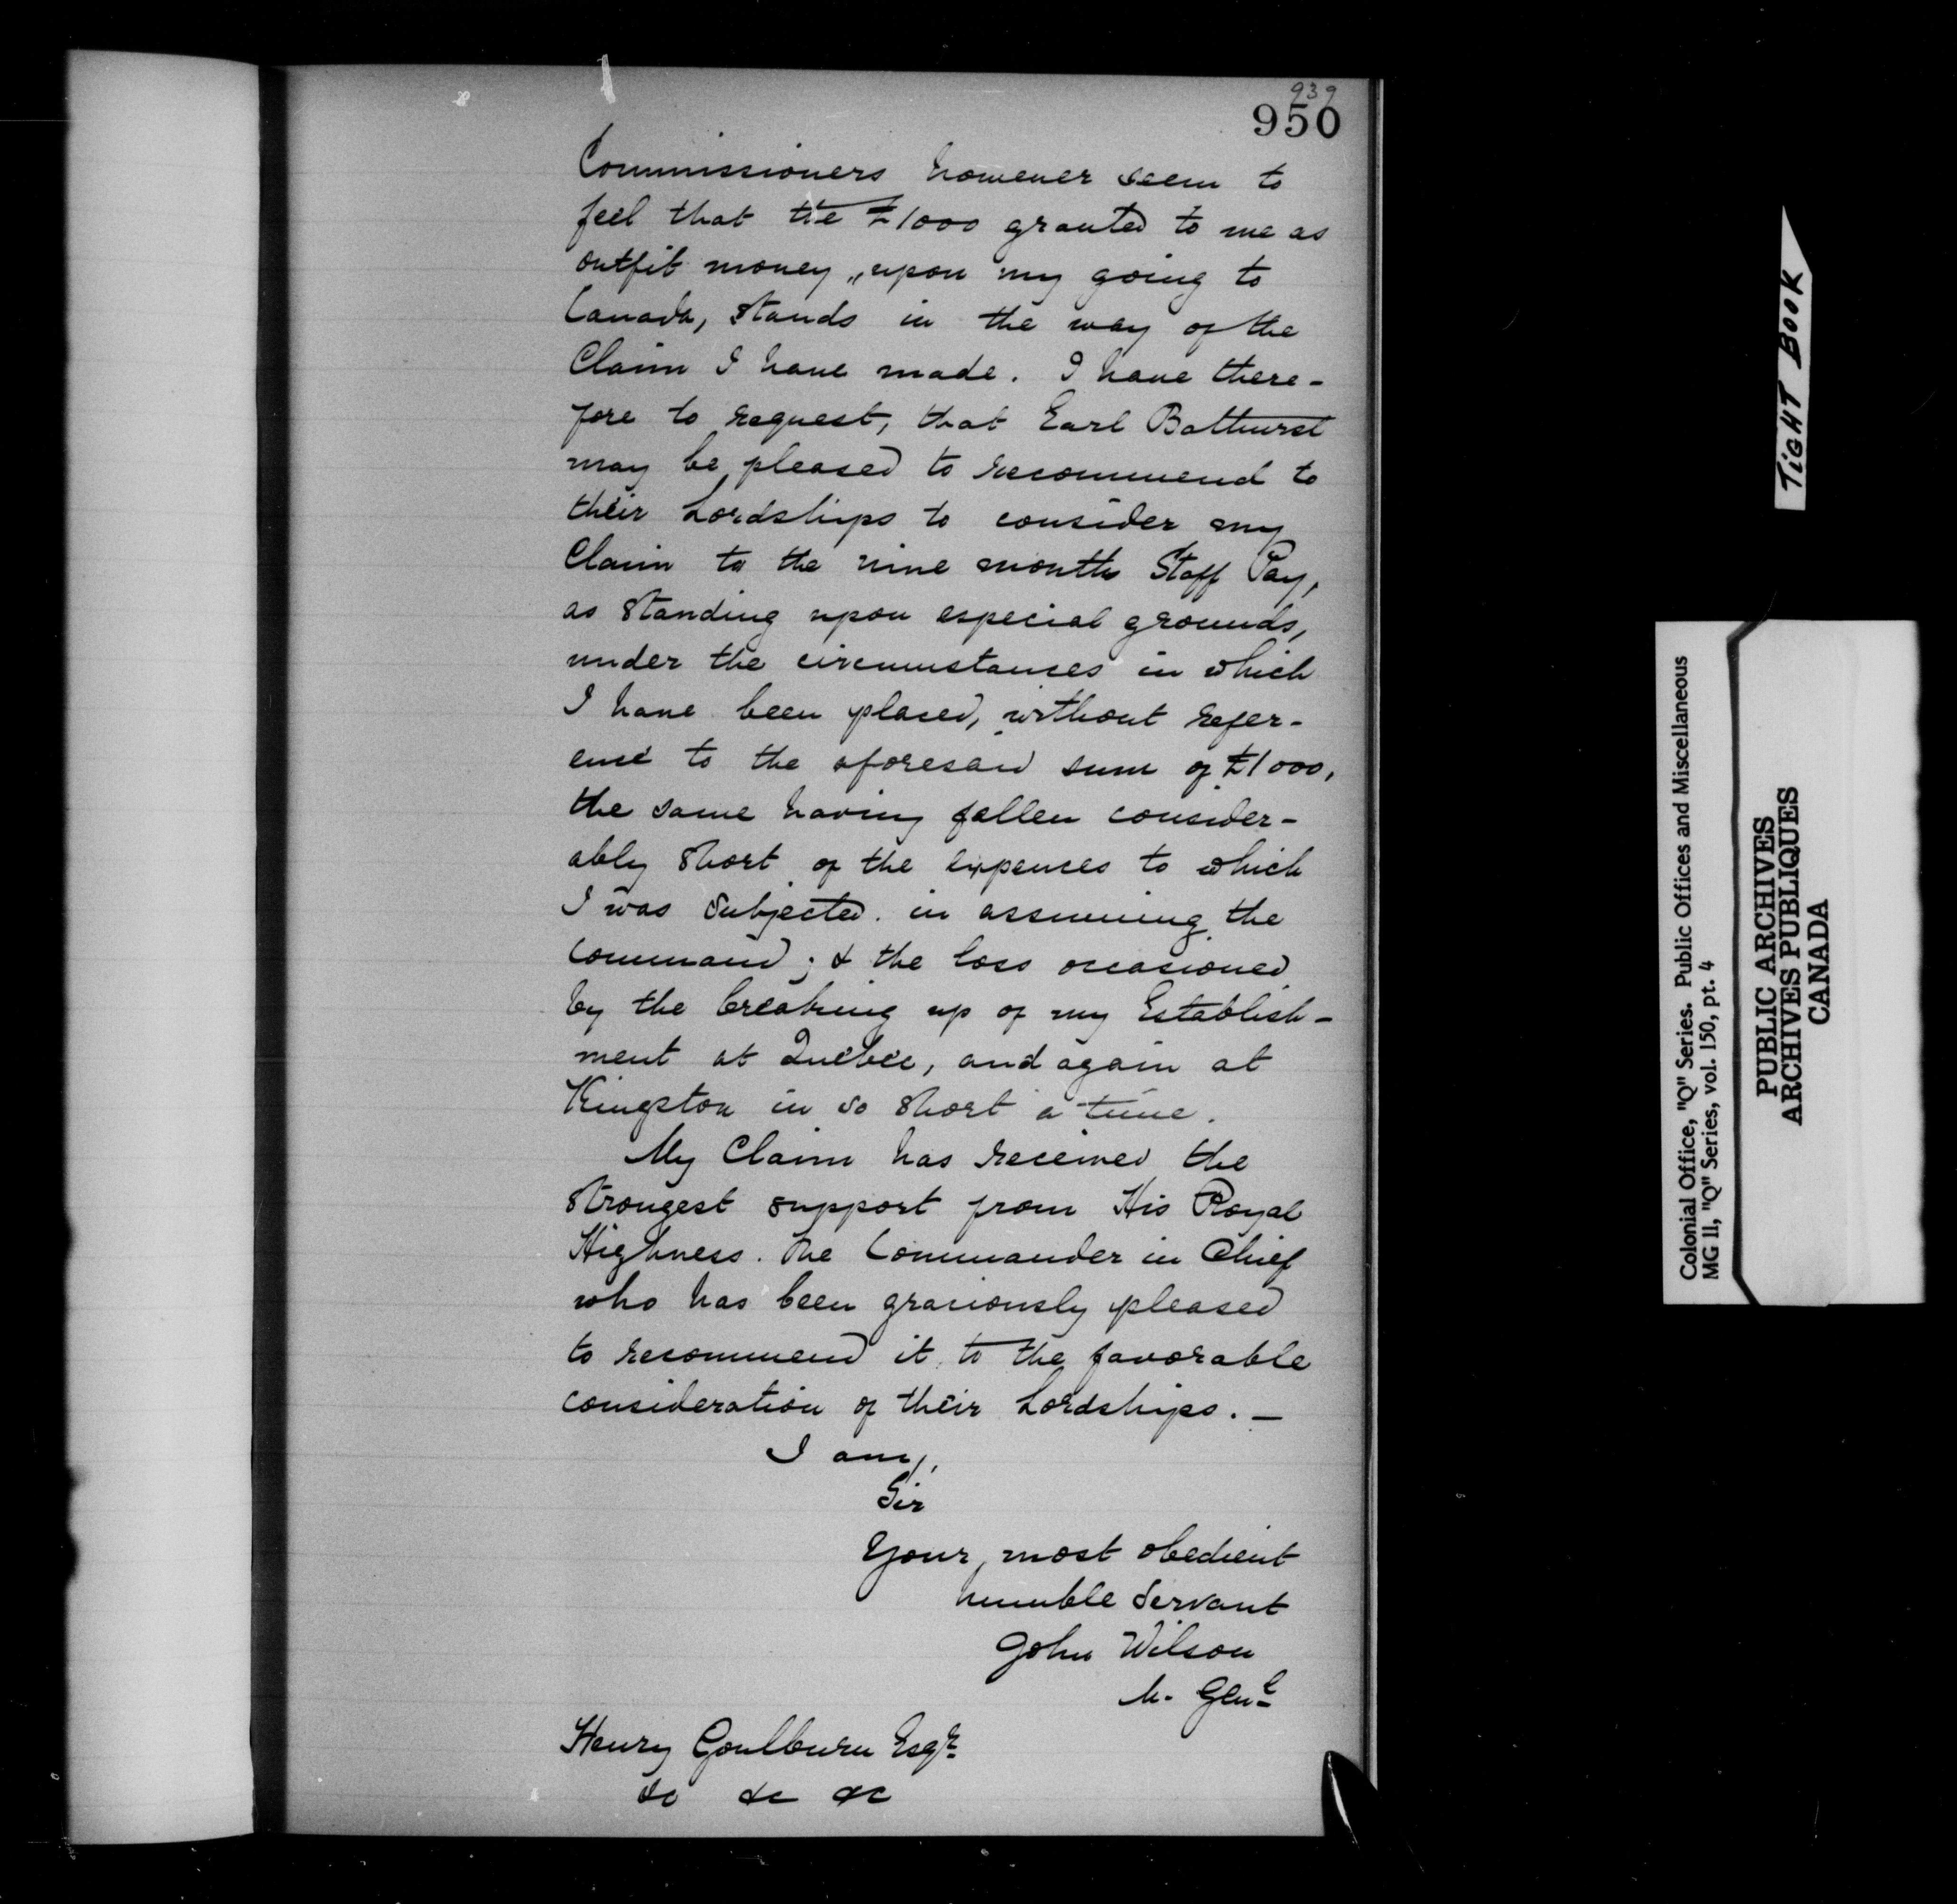 939
950
Commissioners however seem to
feel that the £1000 granted to me as
outfit money, upon my going to
Canada, stands in the way of the
Claim I have made. I have there-
fore to request, that Earl Bathurst
may be pleased to recommend to
their Lordships to consider my
Claim to the nine months Staff Pay,
as standing upon especial grounds,
under the circumstances in which
I have been placed, without refer-
ence to the aforesaid sum of £1000,
the same having fallen consider-
ably short of the expenses to which
I was subjected in assuming the
command; & the loss occasioned
by the breaking up of my Establish-
ment at Quebec, and again at
Kingston in so short a time.
My Claim has received the
strongest support from His Royal
Highness. The Commander in Chief
who has been graciously pleased
to recommend it to the favorable
consideration of their Lordships. —
I am,
Sir
Your, most obedient
humble Servant
John Wilson
M. Genl
Henry Goulburn Esqr
&c &c &c
TIGHT BOOK
Colonial Office, "Q" Series. Public Offices and Miscellaneous
MG 11, "Q" Series, vol. 150, pt. 4
PUBLIC ARCHIVES
ARCHIVES PUBLIQUES
CANADA